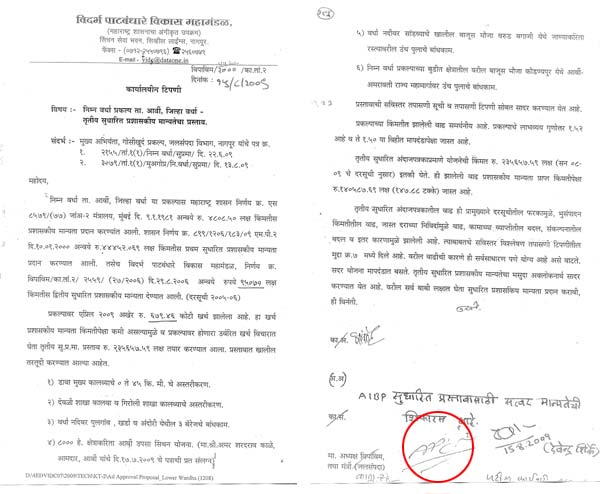 विदर्भ पाटबंधारे विकास महामंडळ,
(महाराष्ट्र शासनाचा अंगीकृत उपक्रम)
सिंचन सेवा भवन, सिव्हील लाईन्स, नागपूर.
E-mail : dataone.in
विपाविम/३०००/का.तां.२
दिनांक : १५/८/२००९
कार्यालयीन टिपणी
विषय :- निम्न वर्धा प्रकल्प ता. आर्वी, जिल्हा वर्धा -
तृतीय सुधारित प्रशासकीय मान्यतेचा प्रस्ताव.
संदर्भ :- मुख्य अभियंता, गोसीखुर्द प्रकल्प, जलसंपदा विभाग, नागपूर यांचे पत्र क्र.
१. २१५५/तां.१(१)/निम्न वर्धा/सुप्रमा/ दि. २२.६.०९
२. ३०७१/तां.१(१)/मुअगोप्र/नि.वर्धा/सुप्रमा/ दि. १३.८.०९
महोदय,
निम्न वर्धा ता. आर्वी, जिल्हा वर्धा या प्रकल्पास महाराष्ट्र शासन निर्णय क्र. एस
८५७१/(७७) जांअ-२ मंत्रालय, मुंबई दि. ९.१.१९८१ अन्वये रु. ४८०८.५० लक्ष किमतीस
प्रशासकीय मान्यता प्रदान करण्यात आली. शासन निर्णय क्र. ८९९/१२०६/१८३/०९ एम.पी.२
दि.१०.०२.२००० अन्वये रु.४४४५२.०६९ लक्ष किमतीस प्रथम सुधारित प्रशासकीय मान्यता
प्रदान करण्यात आली. तसेच विदर्भ पाटबंधारे विकास महामंडळ, निर्णय क्र.
विपाविम/का.तां/ २/ २५५९/ (२७/२००६) दि.२९.८.२००६ अन्वये रुपये ९५०७१ लक्ष
किमतीस द्वितीय सुधारित प्रशासकीय मान्यता देण्यात आली. (दरसूची २००५-०६)
प्रकल्पावर एप्रिल २००९ अखेर रु. ६७९.४६ कोटी खर्च झालेला आहे. हा खर्च
प्रशासकीय मान्यता किमतीपेक्षा कमी असल्यामुळे व प्रकल्पावर होणारा उर्वरित खर्च विचारात
घेता तृतीय सु.प्र.मा. प्रस्ताव रु. २३५६५७.५९ लक्ष तयार करण्यात आला. प्रस्तावात खालील
तरतूदी करण्यात आल्या आहेत.
१) डावा मुख्य कालव्याचे ० ते ४५ कि. मी. चे अस्तरीकरण.
२) देवळी शाखा कालवा व गिरोली शाखा कालव्याचे अस्तरीकरण.
३) वर्धा नदीवर पुलगांव , खर्डा व अंदोरी येथील ३ बॅरेजचे बांधकाम.
४) ८००० हे. क्षेत्राकरिता आर्वी उपसा सिंचन योजना. (मा.श्री.अमर शरदराव काळे,
आमदार, आर्वी यांचे दि.१७.७.२००९ चे पत्राची प्रत संलग्न)
D:\AEDVIDC07\2009\TECH\KT-2\Adl Approval Proposal_Lower Wardha (1208)
५) वर्धा नदीवर सांडव्याचे खालील बाजूस मौजा वरुड बगाजी येथे जाण्याकरिता
रस्त्यावरील उंच पुलाचे बांधकाम.
६) निम्न वर्धा प्रकल्पाच्या बुडीत क्षेत्रातील वरील बाजूस मौजा कोंडण्यपूर येथे आर्वी-
अमरावती राज्य महामार्गावर उंच पुलाचे बांधकाम.
प्रस्तावाची सविस्तर तपासणी सूची व तपासणी टिपणी सोबत सादर करण्यात येत आहे.
प्रकल्पाच्या किमतीत झालेली वाढ समर्थनीय आहे. प्रकल्पाचे लाभव्यय गुणोत्तर १.५२
आहे व ते १.५० या विहीत मापदंडापेक्षा जास्त आहे.
तृतीय सुधारीत अंदाजपत्रकाप्रमाणे योजनेची किमत रु. २३५६५७.५९ लक्ष (सन ०८-
०९ चे दरसूची नुसार) इतकी येते. ही झालेली वाढ प्रशासकीय मान्यता प्राप्त किमतीपेक्षा
रु.१४०५८७.६९ लक्ष (१४७.८८ टक्के) जास्त आहे.
तृतीय सुधारीत अंदाजपत्रकातील वाढ ही प्रामुख्याने दरसूचीतील फरकामुळे, भूसंपादन
किमतीतील वाढ, जास्त दराच्या निविदांमुळे वाढ, कामाच्या व्याप्तीतील बदल, संकल्पनातील
बदल व इतर कारणामुळे झालेली आहे. त्याबाबतचे सविस्तर विश्लेषण तपासणी टिपणीतील
मुद्दा क्र.७ मध्ये दिले आहे. वरील वाढीची कारणे ही सर्वसाधारण पणे योग्य आहे असे वाटते.
सदर योजना मापदंडात बसते. तृतीय सुधारीत प्रशासकीय मान्यतेचा मसुदा अवलोकनार्थ सादर
करण्यात येत आहे. वरील सर्व बाबी लक्षात घेता सुधारित प्रशासकिय मान्यता प्रदान करावी,
ही विनंती.
का.अ.
(अ.अ)
AIBP सुधारित प्रस्तावासाठी सत्वर मान्यतेची
शिफारस आहे.
का.सं.
15.8.2009
मा अध्यक्ष विपाविम,
तथा मंत्री (जलसंपदा)